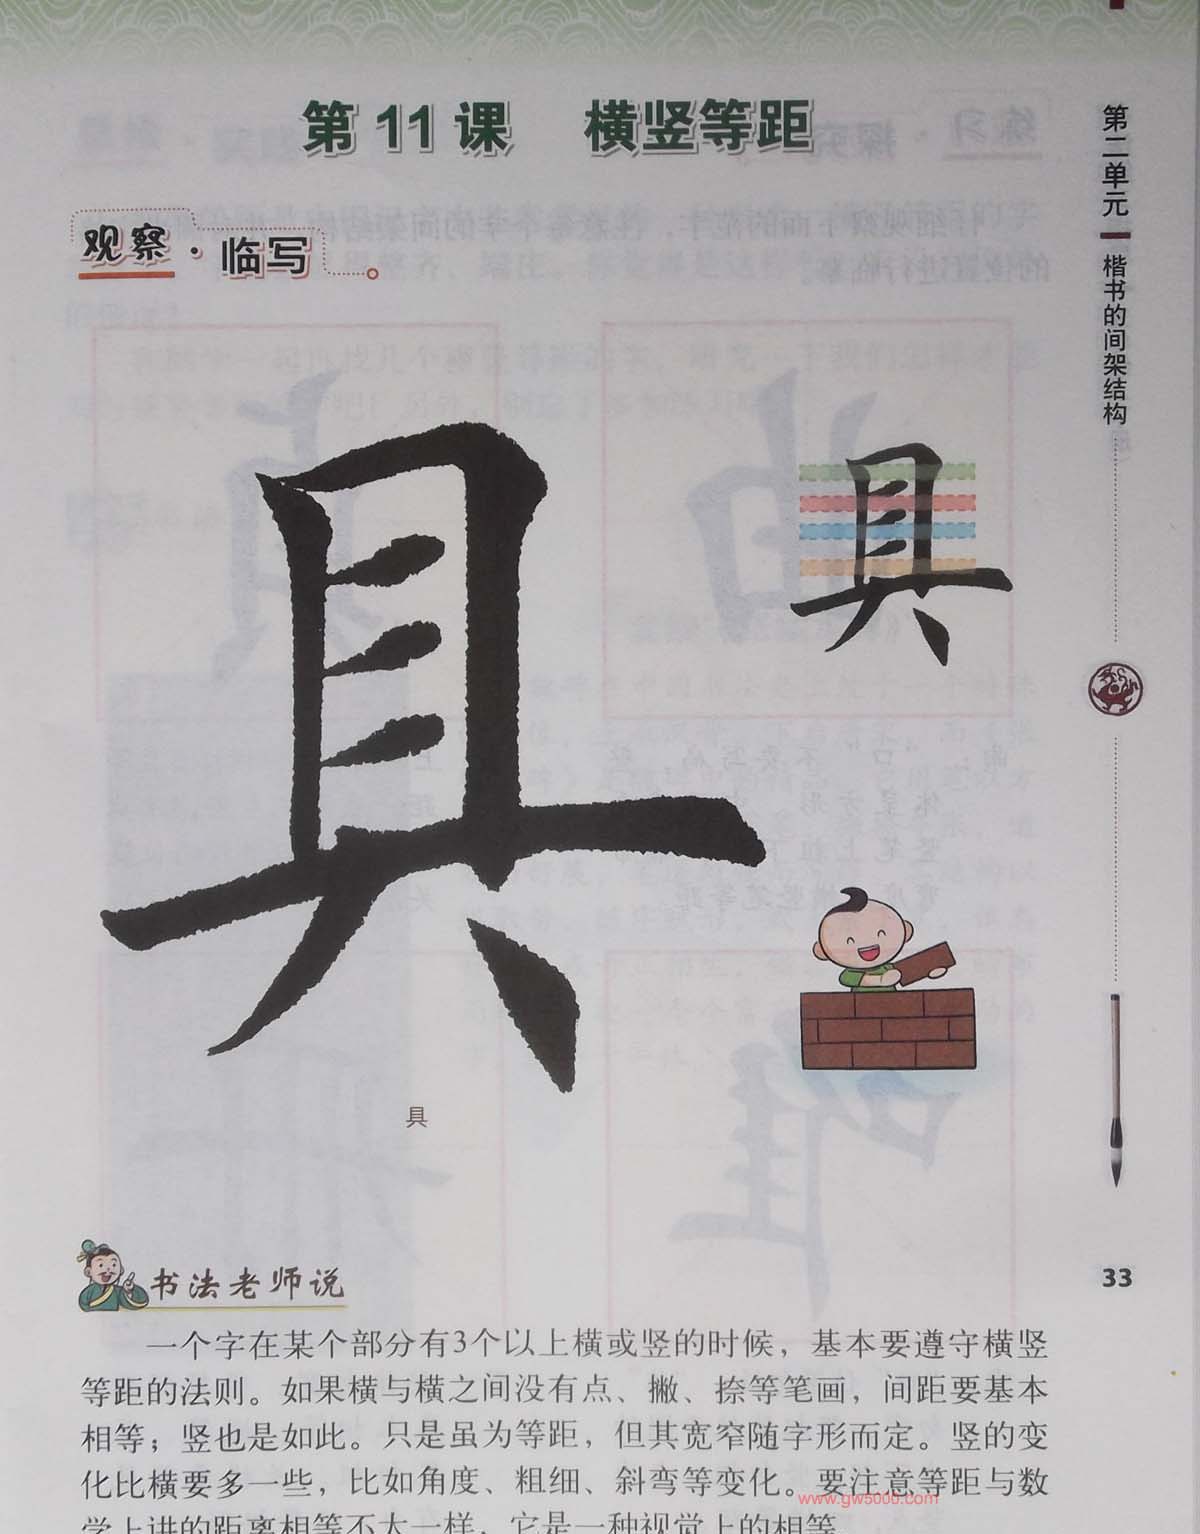 第 11 课 横竖等距
第二单元 楷书的间架结构
观察·临写
具
具
具
33
书法老师说
一个字在某个部分有3个以上横或竖的时候，基本要遵守横竖
等距的法则。如果横与横之间没有点、撇、捺等笔画，间距要基本
相等；竖也是如此。只是虽为等距，但其宽窄随字形而定。竖的变
化比横要多一些，比如角度、粗细、斜弯等变化。要注意等距与数
www.gw5000.com
学上讲的距离相等不太一样，它是一种视觉上的相等。